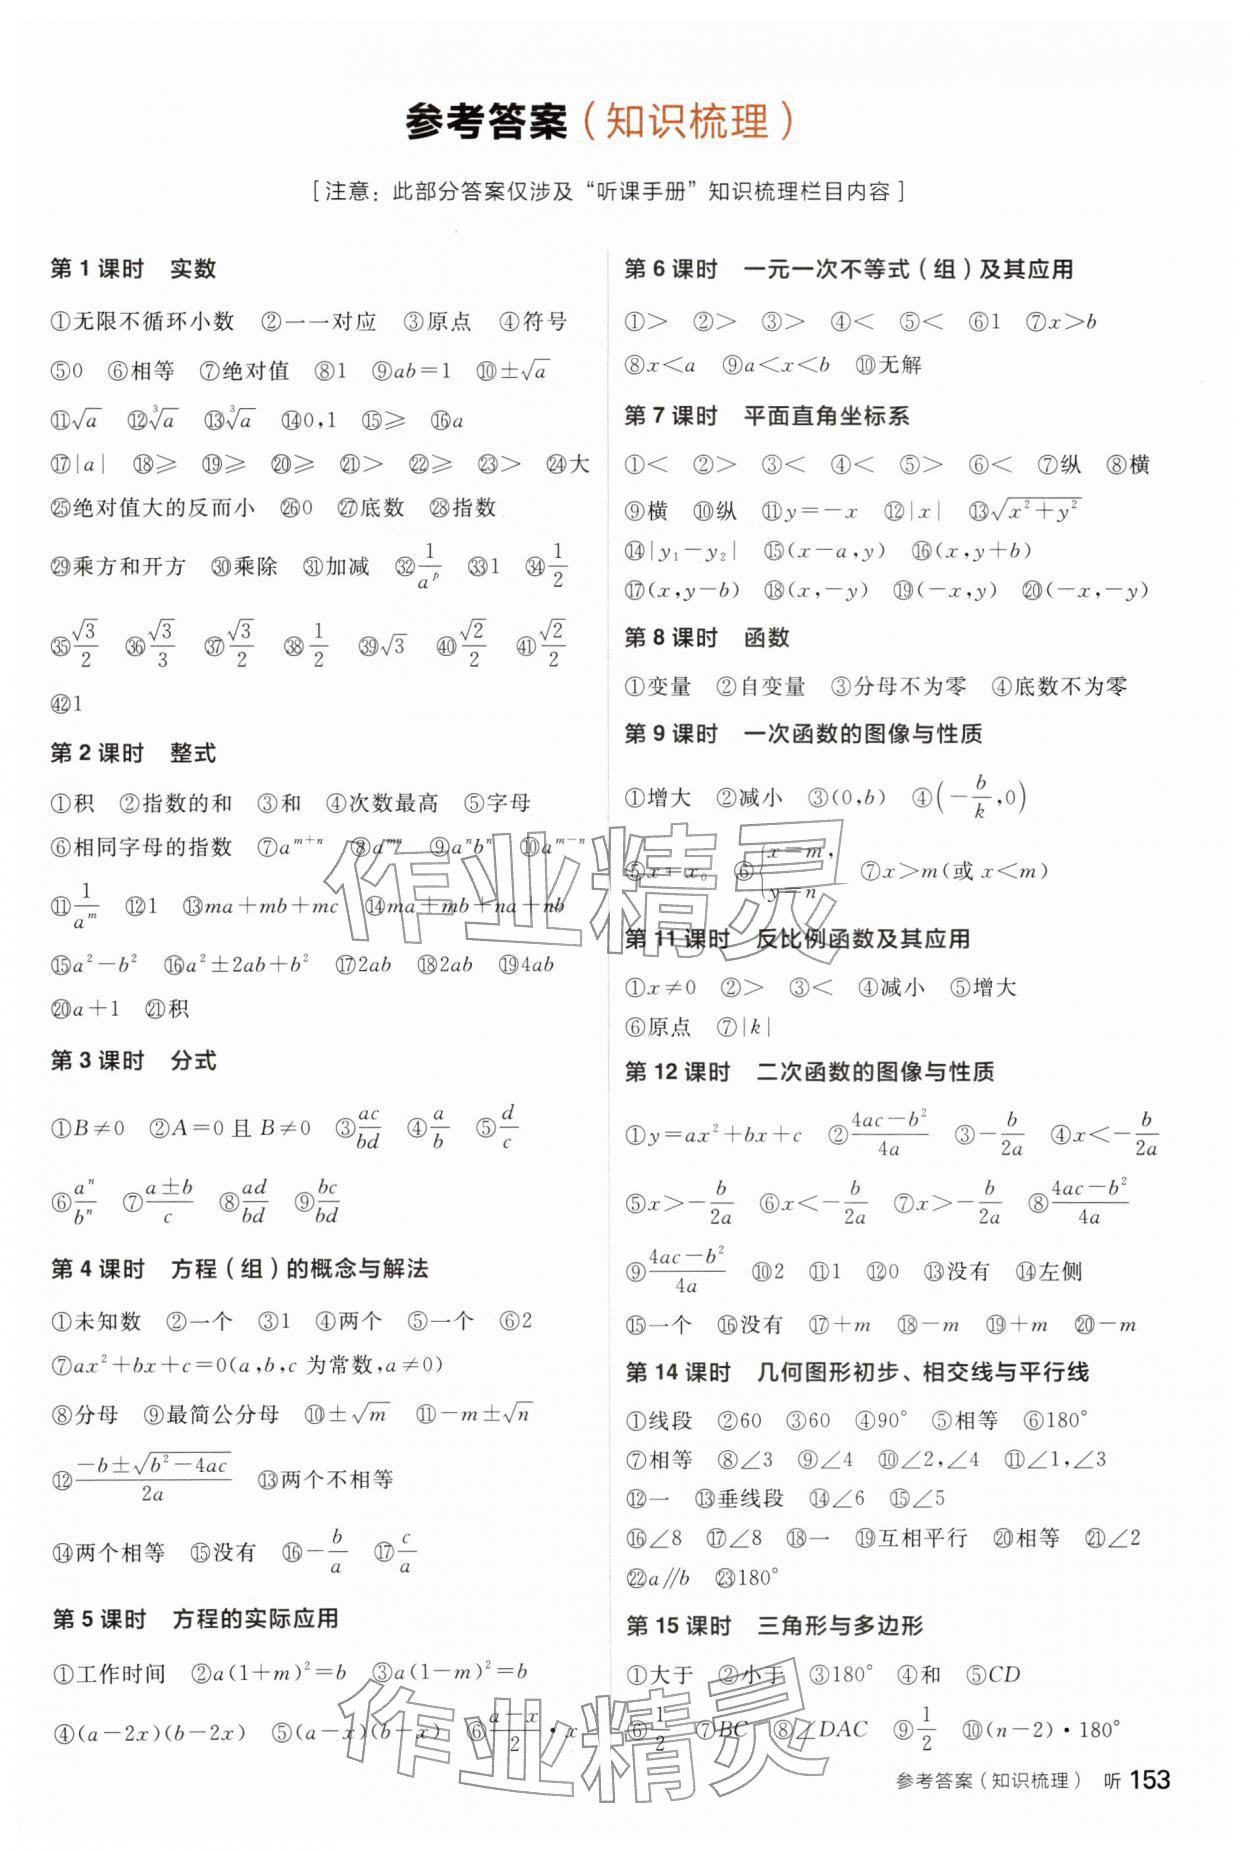 参考答案（知识梳理）
[注意：此部分答案仅涉及“听课手册”知识梳理栏目内容]
第1课时 实数
①无限不循环小数 ②一一对应 ③原点 ④符号
⑤0 ⑥相等 ⑦绝对值 ⑧1 ⑨ab=1 ⑩±√a
⑪√a ⑫∛a ⑬∛a ⑭0,1 ⑮≥ ⑯a
⑰|a| ⑱≥ ⑲≥ ⑳≥ ㉑> ㉒≥ ㉓> ㉔大
㉕绝对值大的反而小 ㉖0 ㉗底数 ㉘指数
㉙乘方和开方 ㉚乘除 ㉛加减 ㉜1/a^p ㉝1 ㉞1/2
㉟√3/2 ㊱√3/3 ㊲√3/2 ㊳1/2 ㊴√3 ㊵√2/2 ㊶√2/2
㊷1
第2课时 整式
①积 ②指数的和 ③和 ④次数最高 ⑤字母
⑥相同字母的指数 ⑦a^(m+n) ⑧a^(mn) ⑨a^n b^n ⑩a^(m-n)
⑪1/a^m ⑫1 ⑬ma+mb+mc ⑭ma+mb+na+nb
⑮a²-b² ⑯a²±2ab+b² ⑰2ab ⑱2ab ⑲4ab
⑳a+1 ㉑积
第3课时 分式
①B≠0 ②A=0且B≠0 ③ac/bd ④a/b ⑤d/c
⑥a^n/b^n ⑦(a±b)/c ⑧ad/bd ⑨bc/bd
第4课时 方程（组）的概念与解法
①未知数 ②一个 ③1 ④两个 ⑤一个 ⑥2
⑦ax²+bx+c=0(a,b,c为常数,a≠0)
⑧分母 ⑨最简公分母 ⑩±√m ⑪-m±√n
⑫(-b±√(b²-4ac))/2a ⑬两个不相等
⑭两个相等 ⑮没有 ⑯-b/a ⑰c/a
第5课时 方程的实际应用
①工作时间 ②a(1+m)²=b ③a(1-m)²=b
④(a-2x)(b-2x) ⑤(a-x)(b-x) ⑥(a-x)/2·x
第6课时 一元一次不等式（组）及其应用
①> ②> ③> ④< ⑤< ⑥1 ⑦x>b
⑧x<a ⑨a<x<b ⑩无解
第7课时 平面直角坐标系
①< ②> ③< ④< ⑤> ⑥< ⑦纵 ⑧横
⑨横 ⑩纵 ⑪y=-x ⑫|x| ⑬√(x²+y²)
⑭|y₁-y₂| ⑮(x-a,y) ⑯(x,y+b)
⑰(x,y-b) ⑱(x,-y) ⑲(-x,y) ⑳(-x,-y)
第8课时 函数
①变量 ②自变量 ③分母不为零 ④底数不为零
第9课时 一次函数的图像与性质
①增大 ②减小 ③(0,b) ④(-b/k,0)
⑤x=x₀ ⑥{x=m, y=n ⑦x>m(或x<m)
第11课时 反比例函数及其应用
①x≠0 ②> ③< ④减小 ⑤增大
⑥原点 ⑦|k|
第12课时 二次函数的图像与性质
①y=ax²+bx+c ②(4ac-b²)/4a ③-b/2a ④x<-b/2a
⑤x>-b/2a ⑥x<-b/2a ⑦x>-b/2a ⑧(4ac-b²)/4a
⑨(4ac-b²)/4a ⑩2 ⑪1 ⑫0 ⑬没有 ⑭左侧
⑮一个 ⑯没有 ⑰+m ⑱-m ⑲+m ⑳-m
第14课时 几何图形初步、相交线与平行线
①线段 ②60 ③60 ④90° ⑤相等 ⑥180°
⑦相等 ⑧∠3 ⑨∠4 ⑩∠2,∠4 ⑪∠1,∠3
⑫一 ⑬垂线段 ⑭∠6 ⑮∠5
⑯∠8 ⑰∠8 ⑱一 ⑲互相平行 ⑳相等 ㉑∠2
㉒a∥b ㉓180°
第15课时 三角形与多边形
①大于 ②小于 ③180° ④和 ⑤CD
⑥1/2 ⑦BC ⑧∠DAC ⑨1/2 ⑩(n-2)·180°
参考答案（知识梳理） 听 153
作业精灵
作业精灵